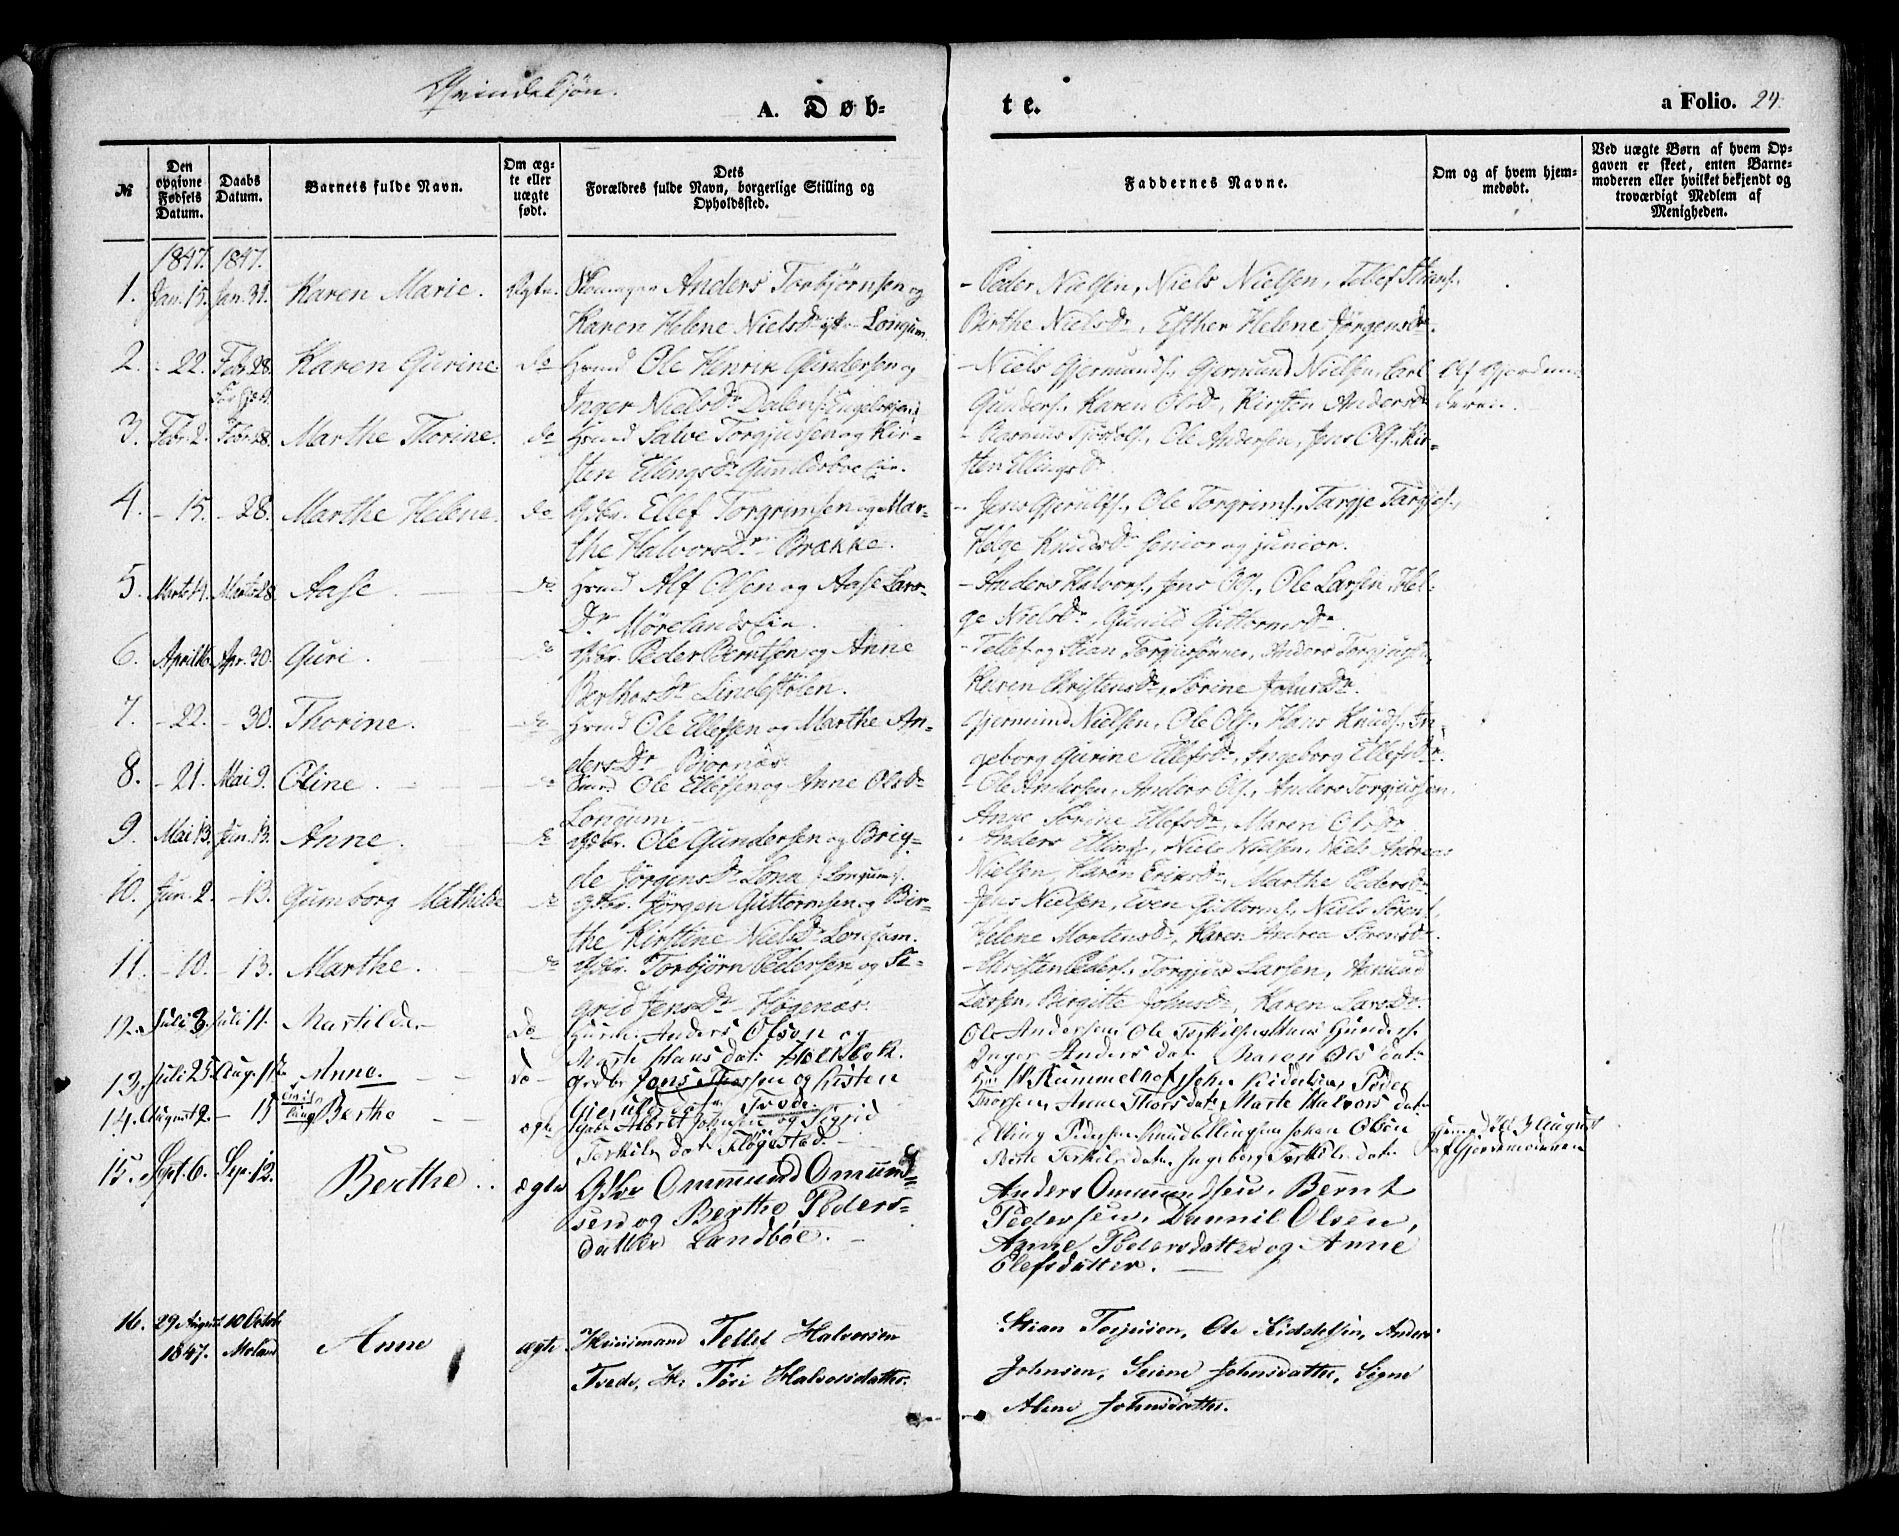 Qvindekjøn.
A. Døb-
te.
a Folio. 24.
№
Den opgivne Fødsels Datum.
Daabs Datum.
Barnets fulde Navn.
Om ægte eller uægte født.
Dets Forældres fulde Navn, borgerlige Stilling og Opholdssted.
Faddernes Navne.
Om og af hvem hjemmedøbt.
Ved uægte Børn af hvem Opgaven er skeet, enten Barnemoderen eller hvilket bekjendt og troværdigt Medlem af Menigheden.
1847. 1847.
1. Jan. 15. Jan. 31. Karen Marie. Ægte. Anders Torbjørnsen og
Karen Helene Nielsdr Longum
- Peder Nielsen, Niels Nielsen, Tellef Stians.
Berthe Nielsdr, Esther Helene Jørgensdr.
2. - 22. Febr. 28. Karen Gurine do Hsmd Ole Henrik Gundersen og
Inger Nielsdr Dalen
- Niels Gjermunds. Gjermund Nielsen, Carl Af Gjordemo-
Gunders. Karen Olsdr, Kirsten Andersdr deren.
3. Febr. 2. Febr. 28. Marthe Thorine. do Hsmd Salve Torgjussen og Kir-
sten Ellingsdr Gunildsboe Eie.
- Rasmus Tjostols., Ole Andersen, Jens Ols., Kir-
sten Ellingsdr
4. - 15. - 28. Marthe Helene. do Gdbr. Ellef Torgrimsen og Mar-
the Halvorsdr Brække.
- Jens Gjerulfs., Ole Torgrims., Targje Targjes.,
Helge Knudsdr senior og junior.
5. Marts 4. Marts 28. Aase. do Hsmd Alf Olsen og Aase Lars-
dr Mørelandseie.
- Anders Halvors., Jens Ols., Ole Larsen, Hel-
ge Nielsdr, Gunild Guttormsdr
6. April 16. Apr. 30. Guri. do Gdbr. Peder Berntsen og Anne
Berthesdr Lindestølen.
- Tellef og Stian Torgjussønner, Anders Torgjussen,
Karen Christensdr, Sørine Johnsdr.
7. - 22. - 30. Thorine. do Hsmd Ole Ellefsen og Marthe An-
dersdr Bjørnås
Gjermund Nielsen, Ole Ols., Hans Knuds., In-
geborg Gurine Ellefsdr, Ingeborg Ellefsdr.
8. - 21. Mai 9. Oline. do Hsmd Ole Ellefsen og Anne Olsdr
Longum.
- Ole Andersen, Anders Ols., Anders Torgjussen,
Anne Sørine Ellefsdr, Maren Olsdr
9. Mai 13. Jun. 13. Anne. do Gdbr. Ole Gundersen og Brig-
de Jørgensdr Lona (Longum).
- Anders Ellings., Niels Nielsen, Niels Andreas
Nielsen, Karen Eriksdr, Marthe Pedersdr
10. Jun. 2. - 13. Gumborg Mathilde do Gdbr. Jørgen Guttormsen og Bir-
the Kirstine Nielsdr Longum.
- Jens Nielsen, Even Guttorms., Niels Sørens.,
Helene Mortensdr, Karen Andrea Sørensdr.
11. - 10. - 13. Marthe. do Gdbr. Torbjørn Pedersen og Si-
grid Jensdr Høgenæs.
- Christen Peders., Torgjus Larsen, Aamund
Larsen, Birgitte Johnsdr, Karen Larsdr.
12. Juli 3. Juli 11. Matilde do Anders Olsen og
Marte Hansdat:
Ole Andersen Ole Terkilsen Hans Gunders.
Inger Andersdat. Maren Olsdat:
13. Juli 25. Aug. 15 Anne. do Grdbr Jens Thorsen og Kisten
Gjeruldsdat: Tvede.
Pider
Thorsen, Anne Thorsdat, Marte Halvorsdat.
14. August 2. - 15 Berthe ægte Albret Johnsen og Sigrid
Terkilsdat Fløgstad.
Elling Pedersen Knud Ellingsen Johan Olsen
Berte Terkilsdat. Ingeborg Terkilsdat. d. 3 August
af Gjordemoderen
15. Sept. 6. Sep. 12. Berthe. ægte Gdbr Ommund Omund-
sen og Berthe Peders-
datter Landbøe.
Anders Ommundsen, Bernt
Pedersen, Dannil Olsen,
Anne Pedersdatter og Anne
Olefsdatter.
16. 29 August 10 Octob
1847. Moland Anne ægte Huusmand Tellef Halvorsen
Tvede, H. Tøri Halvorsdatter.
Stian Torjusen, Ole Kiddelsen, Anders
Johnsen, Seiene Johnsdatter, Signe
Alene Johnsdatter.